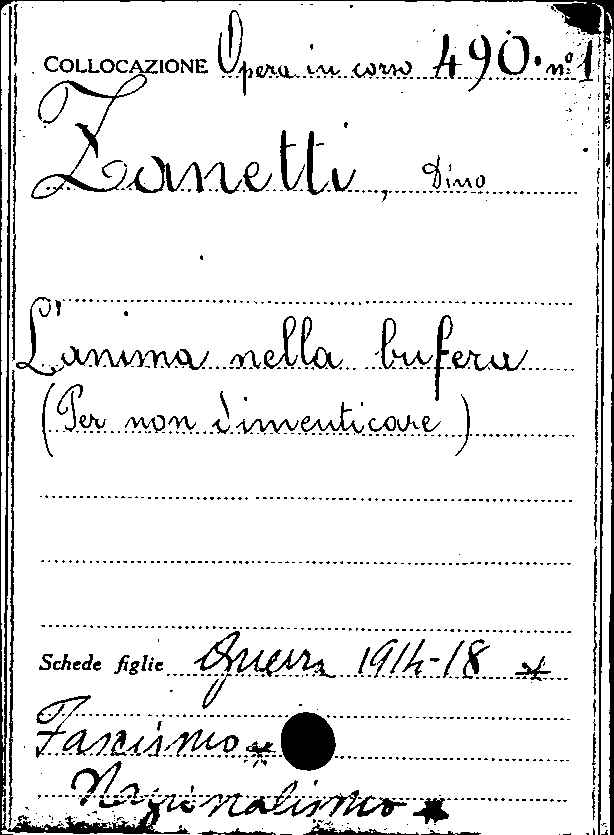 COLLOCAZIONE Opera in corso 490. nº 1
Zanetti, Dino
L'anima nella bufera
(Per non dimenticare)
Schede figlie Guerra 1914-18 *
Fascismo *
Nazionalismo *